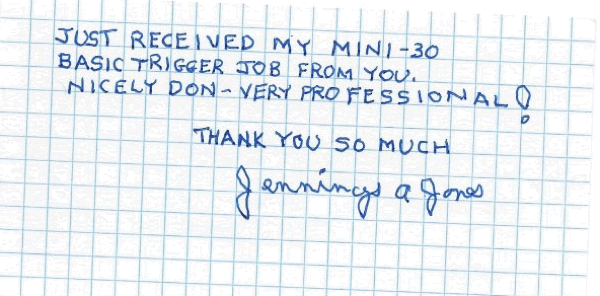 JUST RECEIVED MY MINI-30
BASIC TRIGGER JOB FROM YOU.
NICELY DON - VERY PROFESSIONAL!
THANK YOU SO MUCH
Jennings a Jones